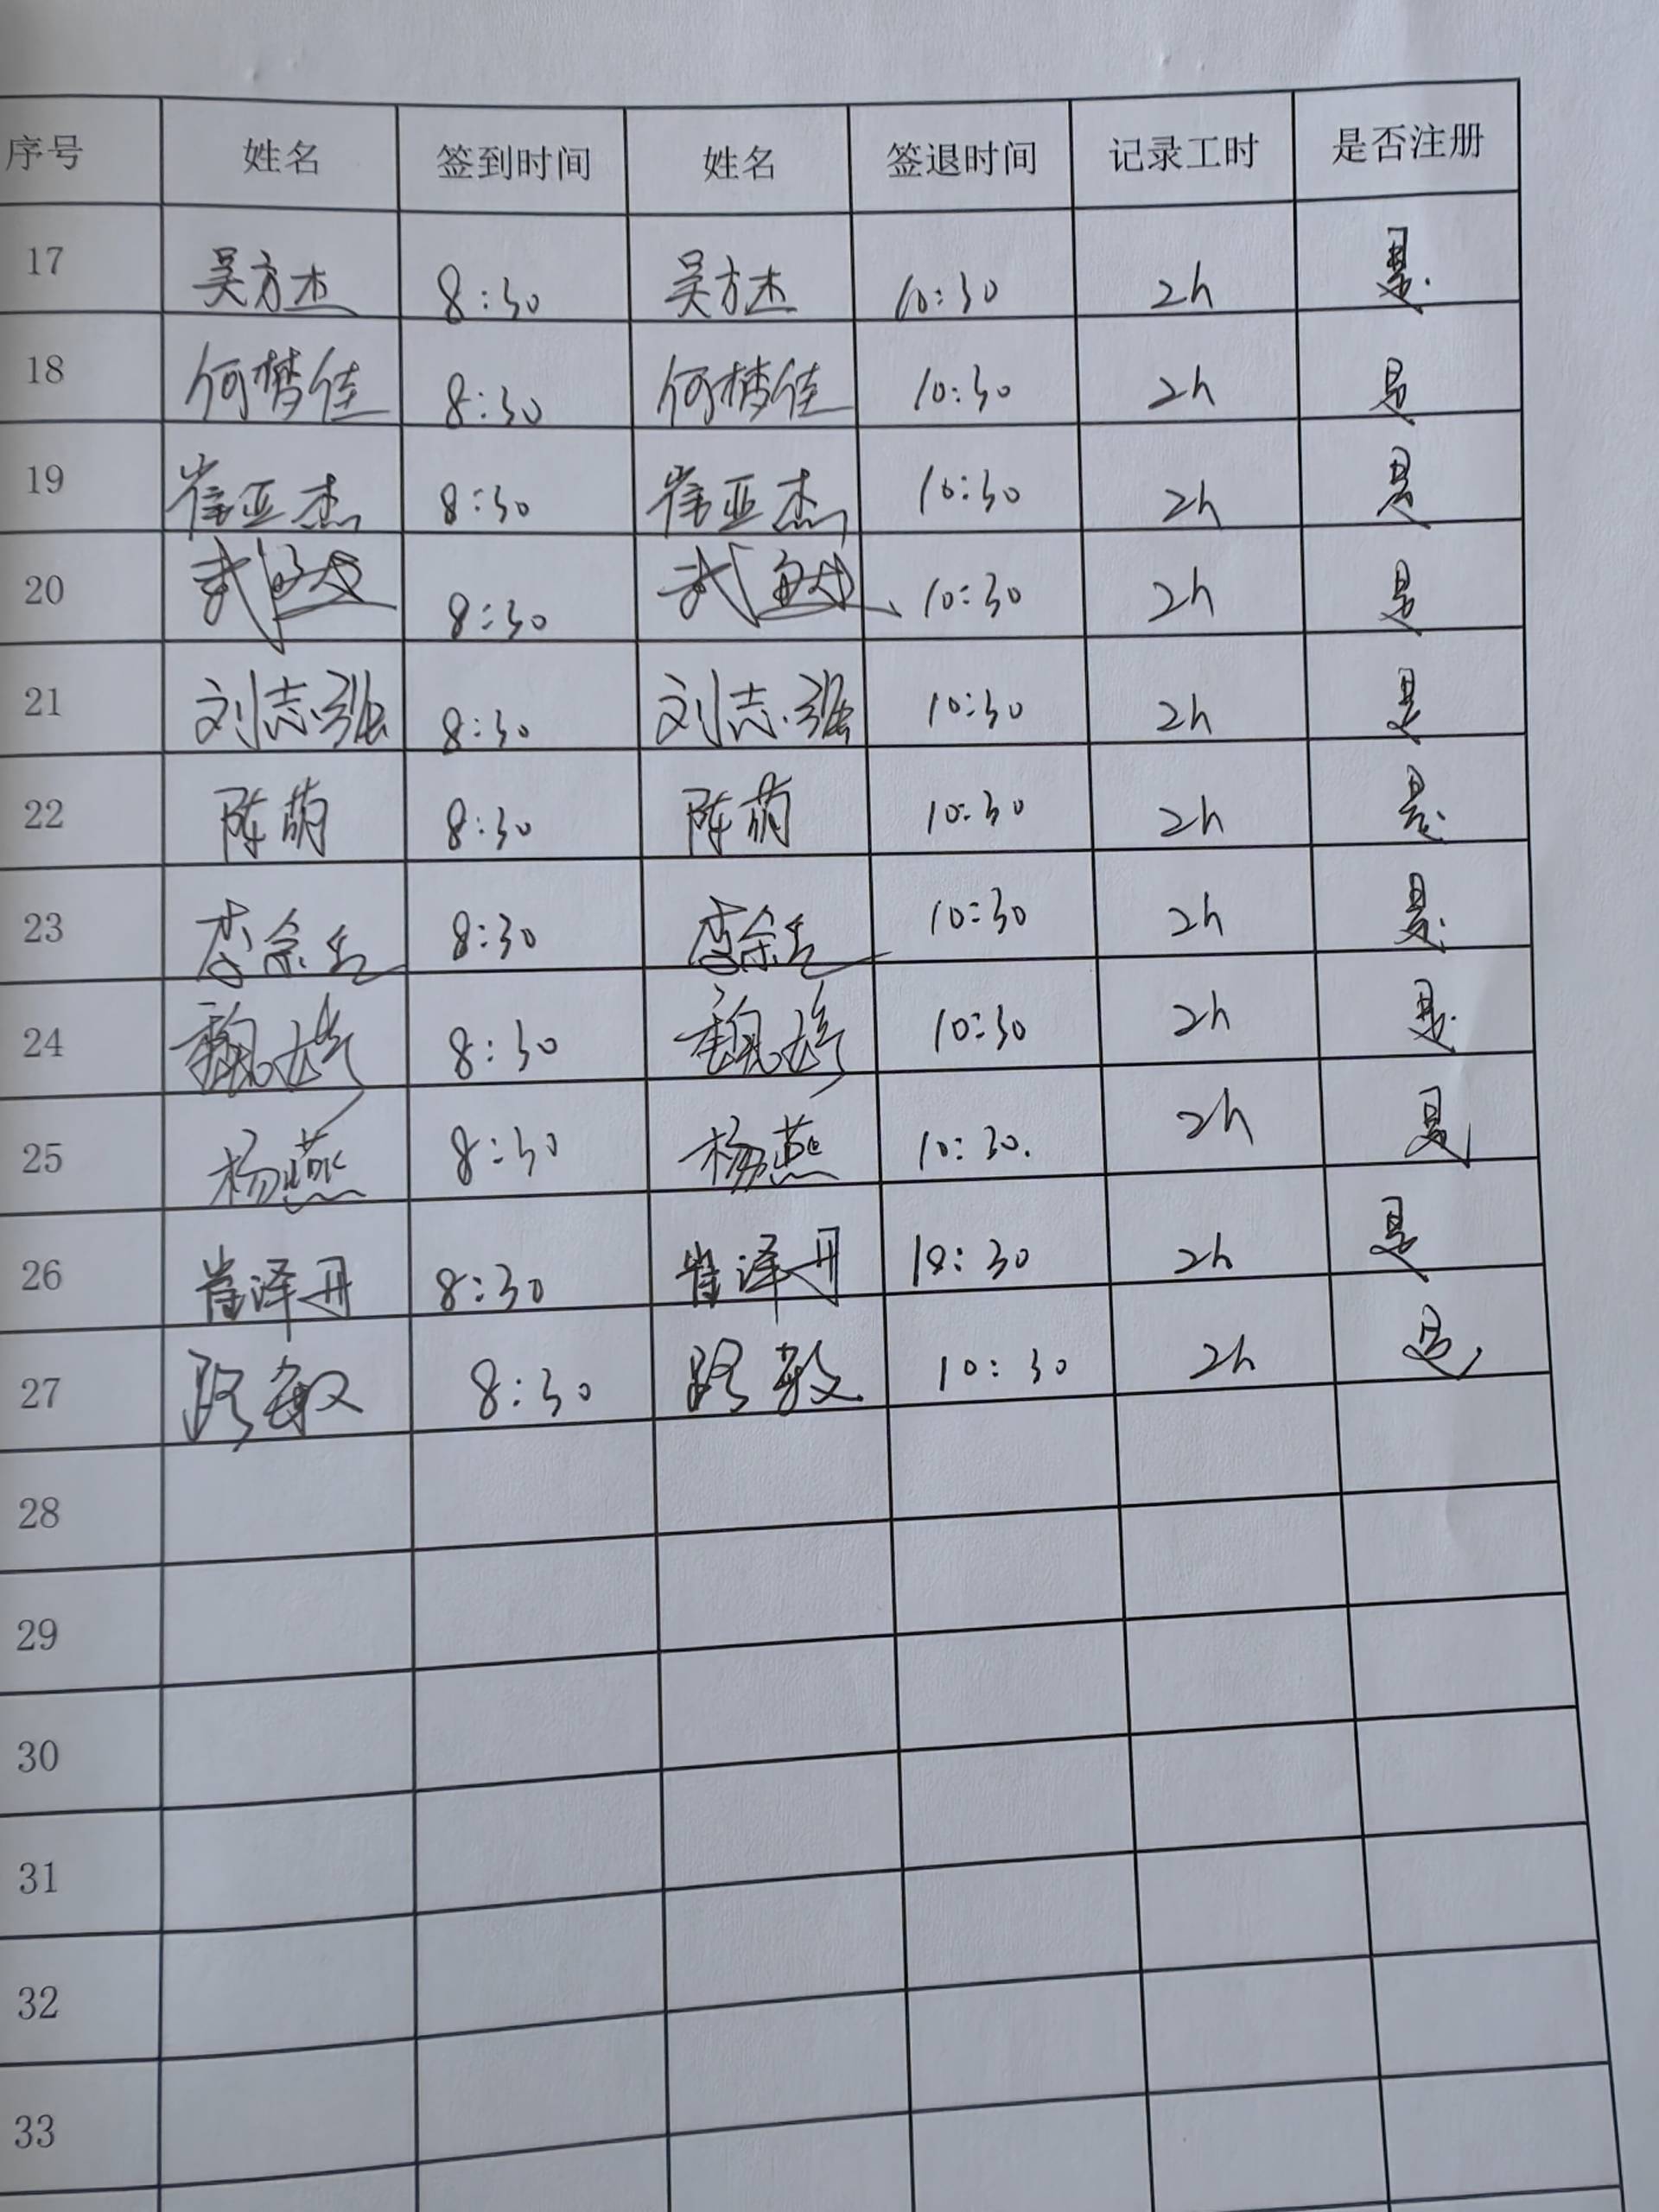 序号 姓名 签到时间 姓名 签退时间 记录工时 是否注册
17 吴方杰 8:30 吴方杰 10:30 2h 是.
18 何梦佳 8:30 何梦佳 10:30 2h 是
19 崔亚杰 8:30 崔亚杰 10:30 2h 是
20 武 8:30 武 10:30 2h 是
21 刘志强 8:30 刘志强 10:30 2h 是
22 陈萌 8:30 陈萌 10:30 2h 是.
23 李 8:30 李 10:30 2h 是.
24 魏 8:30 魏 10:30 2h 是.
25 杨燕 8:30 杨燕 10:30. 2h 是
26 肖泽丹 8:30 肖泽丹 10:30 2h 是
27 路敏 8:30 路敏 10:30 2h 是
28
29
30
31
32
33